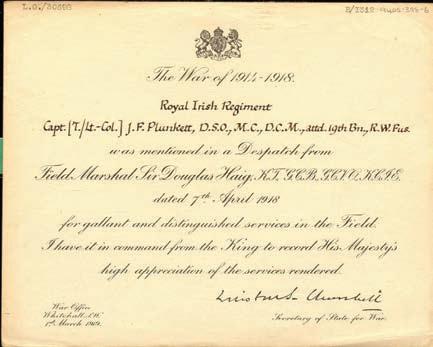 L.G./30593
The War of 1914-1918.
Royal Irish Regiment
Capt. [T./Lt.-Col.] J. F. Plunkett, D.S.O., M.C., D.C.M., attd. 19th Bn., R. W. Fus.
was mentioned in a Despatch from
Field Marshal Sir Douglas Haig, K.T. G.C.B. G.C.V.O. K.C.I.E.
dated 7th April 1918
for gallant and distinguished services in the Field.
I have it in command from the King to record His Majesty's
high appreciation of the services rendered.
Winston S. Churchill
War Office
Whitehall, S.W.
1st March 1919.
Secretary of State for War.